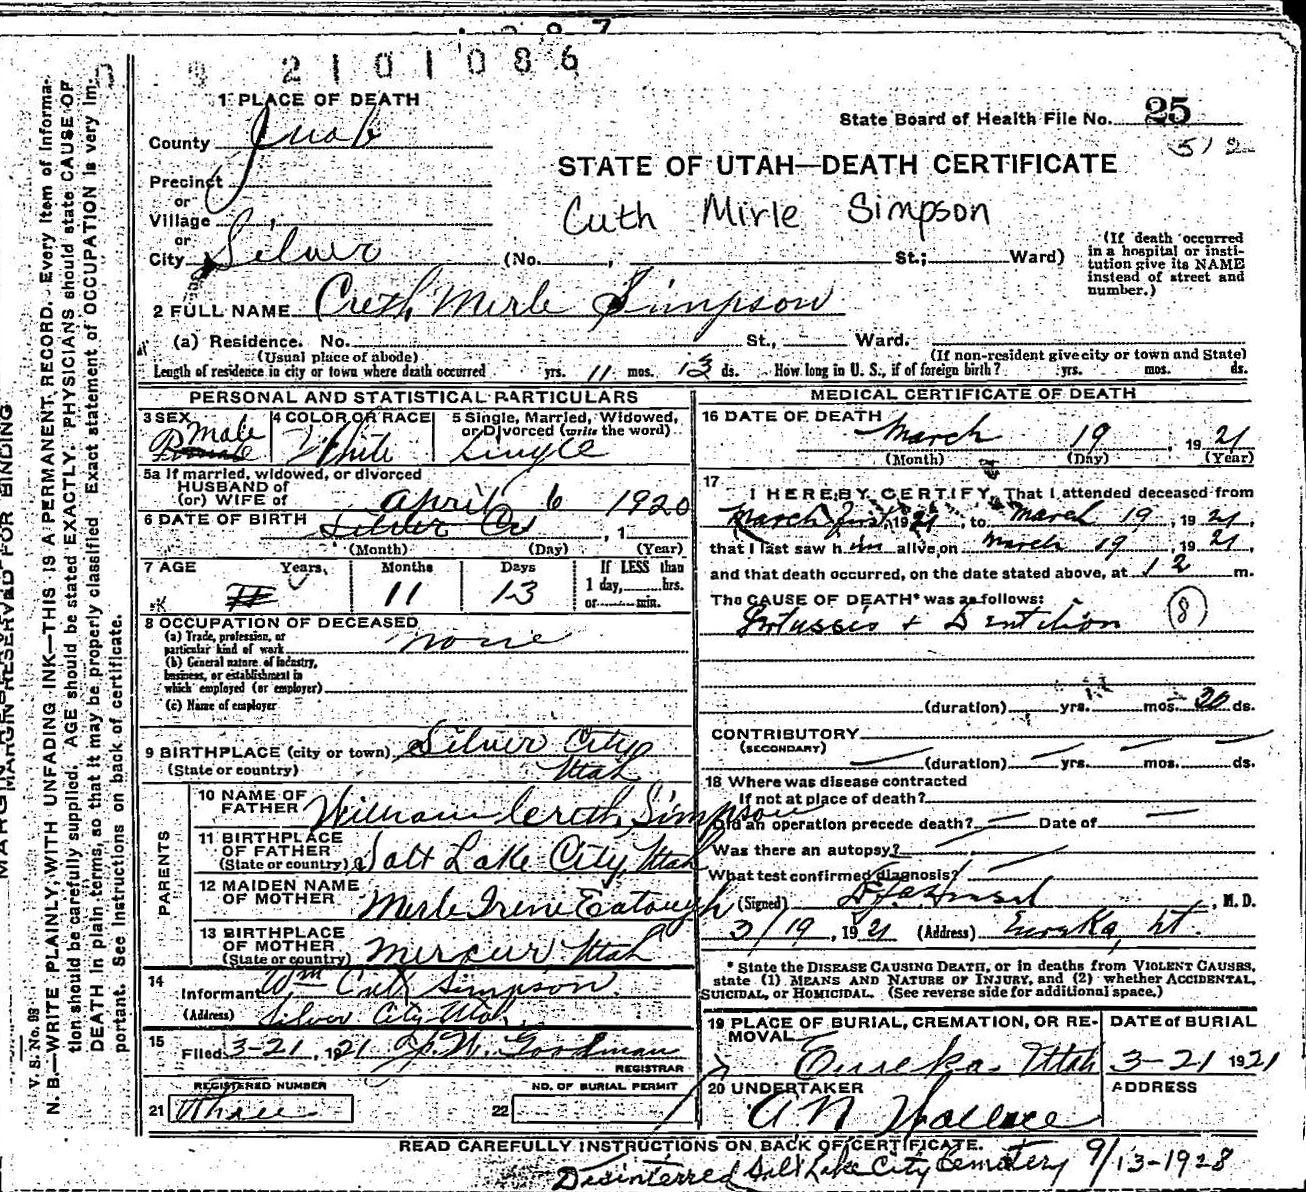 2101086
1 PLACE OF DEATH
County Juab
State Board of Health File No. 25
512
STATE OF UTAH—DEATH CERTIFICATE
Precinct
or
Village
or
City Silver (No. , St.; Ward)
Cuth Mirle Simpson
(If death occurred in a hospital or institution give its NAME instead of street and number.)
2 FULL NAME Creth Merle Simpson
(a) Residence. No. St., Ward.
(Usual place of abode) (If non-resident give city or town and State)
Length of residence in city or town where death occurred yrs. 11 mos. 13 ds. How long in U. S., if of foreign birth? yrs. mos. ds.
PERSONAL AND STATISTICAL PARTICULARS
3 SEX Male Female
4 COLOR OR RACE White
5 Single, Married, Widowed, or Divorced (write the word) Single
5a If married, widowed, or divorced
HUSBAND of
(or) WIFE of
April 6 1920
6 DATE OF BIRTH Silver C , 1
(Month) (Day) (Year)
7 AGE Years Months Days If LESS than
11 13 1 day, hrs.
or min.
8 OCCUPATION OF DECEASED
(a) Trade, profession, or
particular kind of work none
(b) General nature of industry,
business, or establishment in
which employed (or employer)
(c) Name of employer
9 BIRTHPLACE (city or town) Silver City
(State or country) Utah
PARENTS
10 NAME OF FATHER William Creth Simpson
11 BIRTHPLACE OF FATHER (State or country) Salt Lake City, Utah
12 MAIDEN NAME OF MOTHER Merle Irene Eatough
13 BIRTHPLACE OF MOTHER (State or country) Mercur Utah
14 Informant Wm Simpson
(Address) Silver City Utah
15 Filed 3-21, 1921 Goodman
REGISTRAR
REGISTERED NUMBER NO. OF BURIAL PERMIT
21 Three 22
MEDICAL CERTIFICATE OF DEATH
16 DATE OF DEATH March 19, 1921
(Month) (Day) (Year)
17 I HEREBY CERTIFY, That I attended deceased from
March first, 1921, to March 19, 1921,
that I last saw him alive on March 19, 1921,
and that death occurred, on the date stated above, at 12 m.
The CAUSE OF DEATH* was as follows:
Pertussis + Dentition 8
(duration) yrs. mos. 20 ds.
CONTRIBUTORY
(SECONDARY)
(duration) yrs. mos. ds.
18 Where was disease contracted
If not at place of death?
Did an operation precede death? Date of
Was there an autopsy?
What test confirmed diagnosis?
(Signed) , M.D.
3/19, 1921 (Address) Eureka, Ut.
* State the DISEASE CAUSING DEATH, or in deaths from VIOLENT CAUSES,
state (1) MEANS AND NATURE OF INJURY, and (2) whether ACCIDENTAL,
SUICIDAL, or HOMICIDAL. (See reverse side for additional space.)
19 PLACE OF BURIAL, CREMATION, OR REMOVAL Eureka Utah
DATE of BURIAL 3-21 1921
20 UNDERTAKER A N Wallace
ADDRESS
READ CAREFULLY INSTRUCTIONS ON BACK OF CERTIFICATE.
Disinterred Salt Lake City Cemetery 9/13-1928
MARGIN RESERVED FOR BINDING
V. S. No. 98
N. B.—WRITE PLAINLY, WITH UNFADING INK—THIS IS A PERMANENT RECORD. Every item of informa-
tion should be carefully supplied. AGE should be stated EXACTLY. PHYSICIANS should state CAUSE OF
DEATH in plain terms, so that it may be properly classified. Exact statement of OCCUPATION is very im-
portant. See instructions on back of certificate.